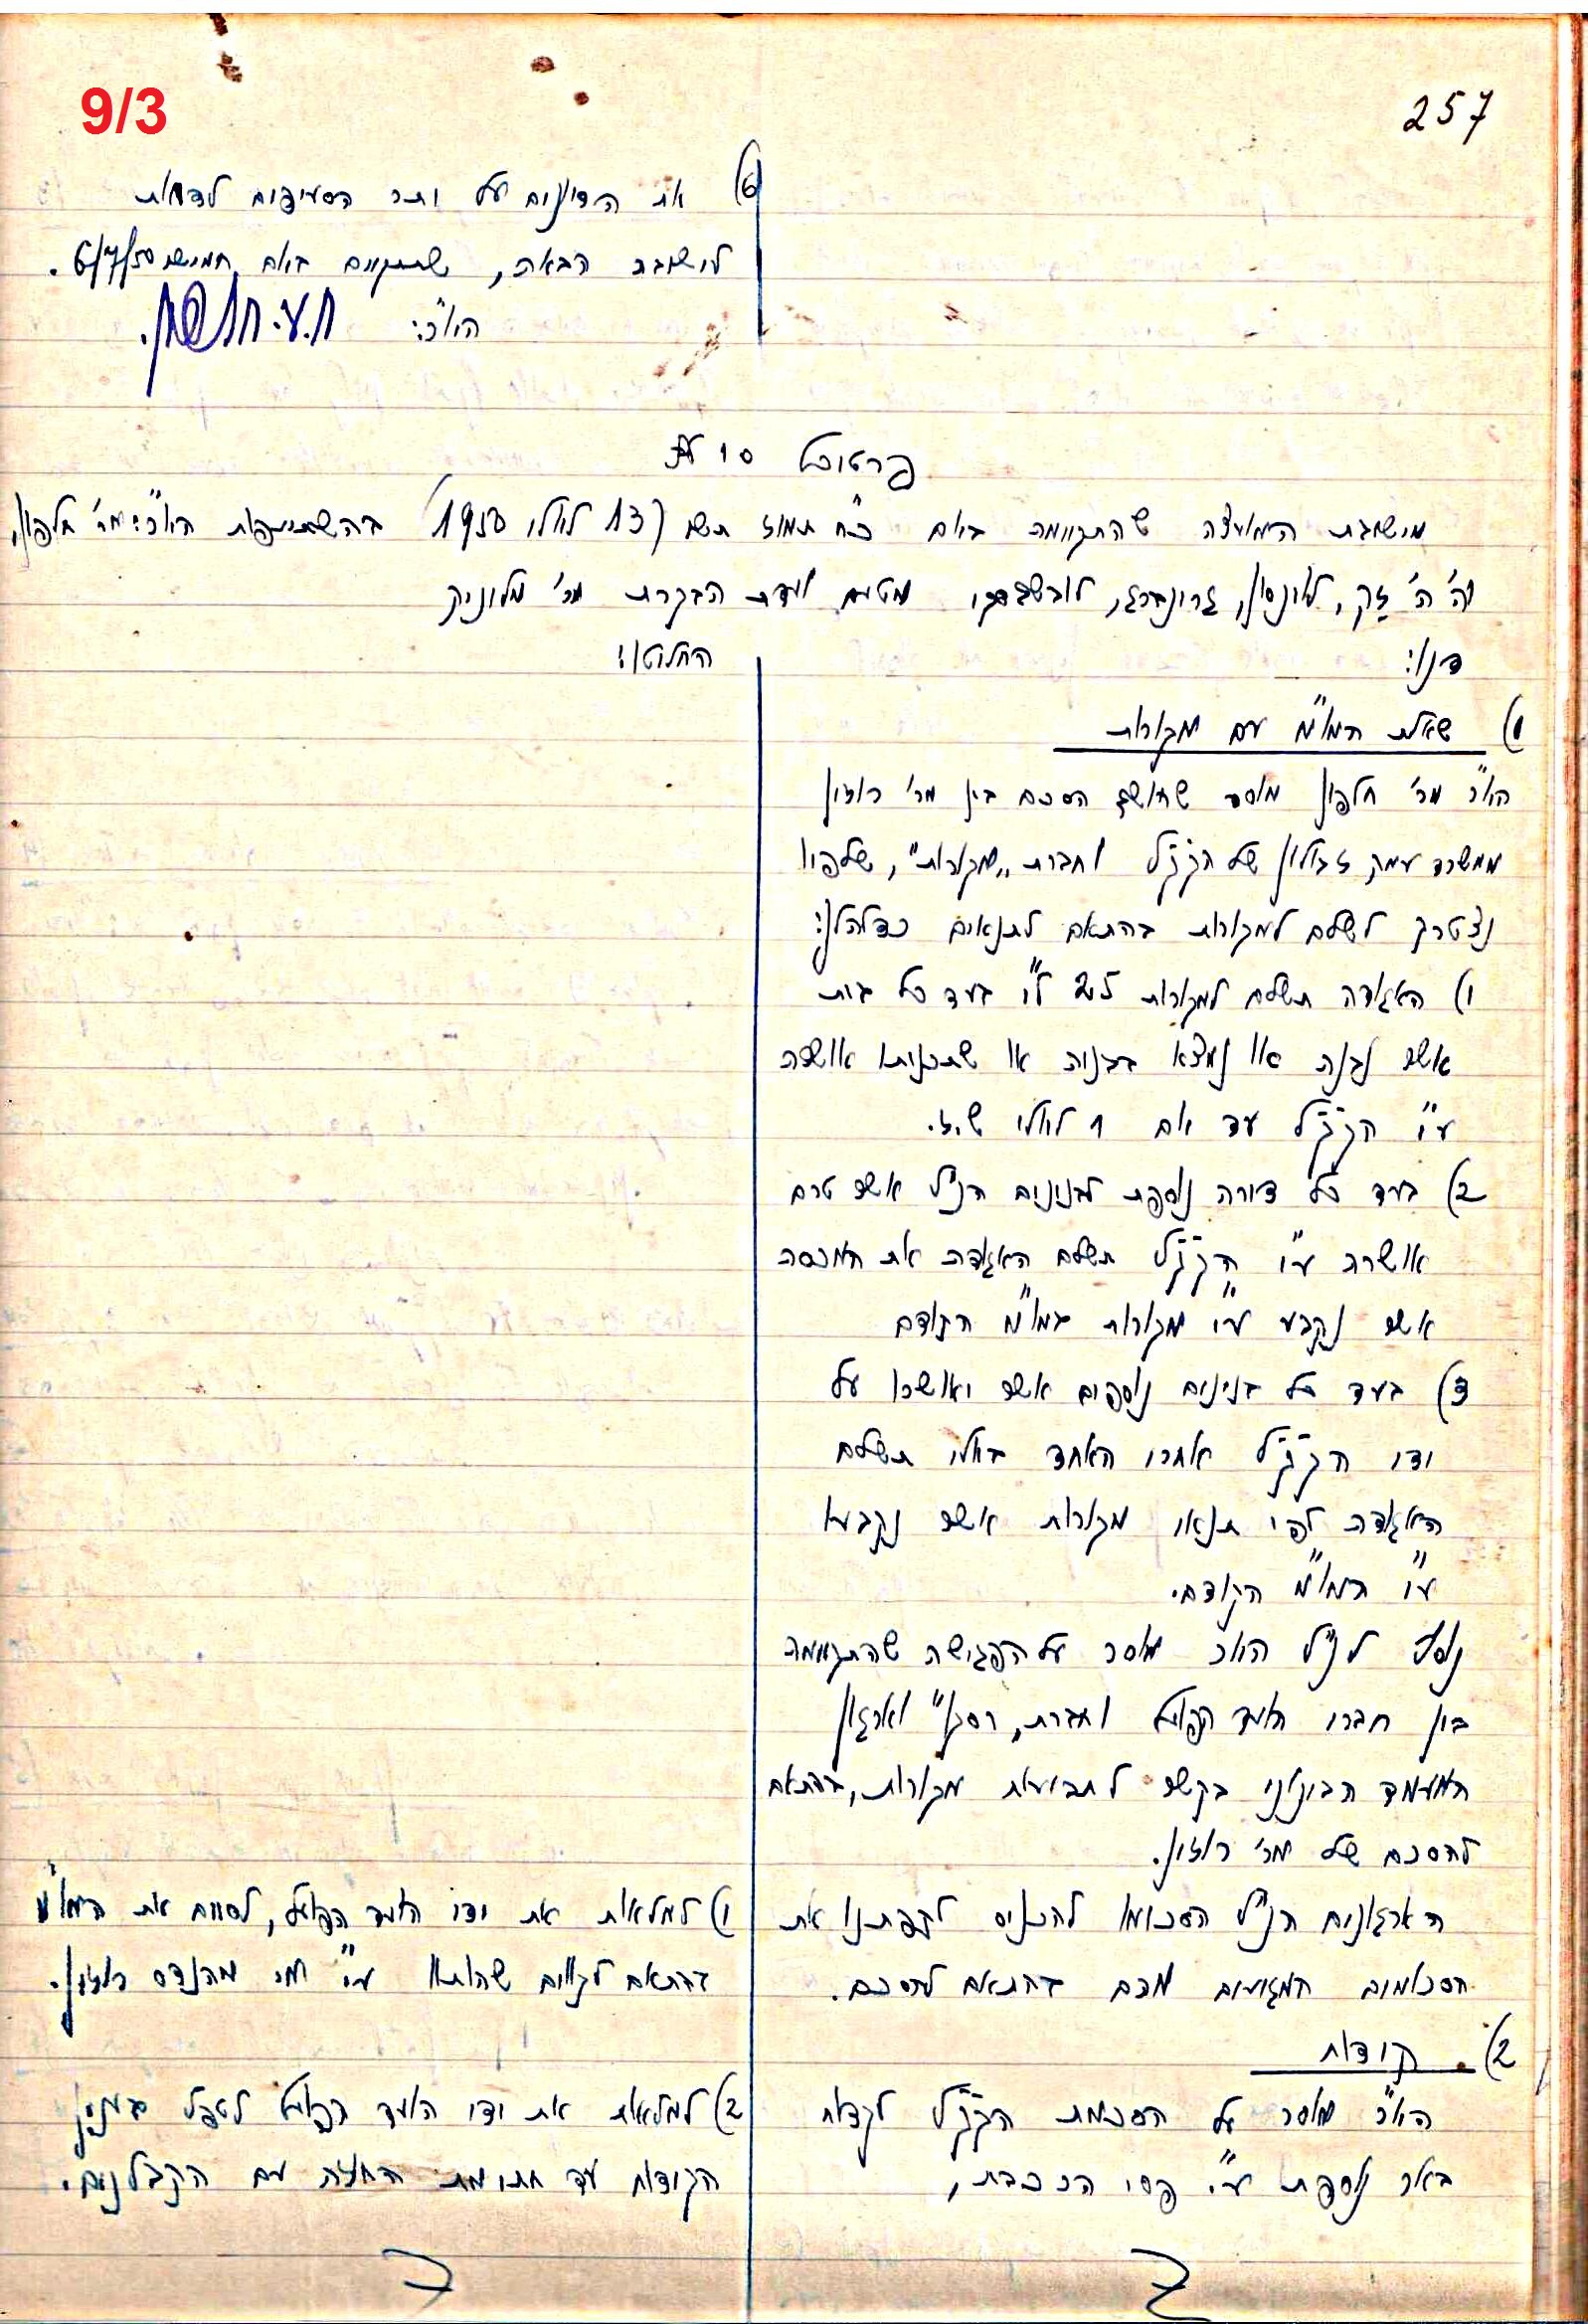 9/3
257
6) את הדיונים על יתר הסעיפים לדחות
לישיבה הבאה, שתתקיים ביום חמישי 6/7/50.
היו"ר:
פרטוכל 10
מישיבת המועצה שהתקיימה ביום כ"ח תמוז תש"י (13 ליולי 1950) בהשתתפות היו"ר: מר חלפון,
וה' ה' זק, לוינסון, גרונברג, לובשבסקי, מטעם ועדת הבקרת מר' מלוניק
דנו:
1) שאלת המו"מ עם מקורות
היו"ר מר' חלפון מוסר שהושג הסכם בין מר' רוזין
ממשרד עמק זבולון של הקק"ל וחברת "מקורות", שלפיו
נצטרך לשלם למקורות בהתאם לתנאים כדלהלן:
1) האגודה תשלם למקורות 25 ל"י בעד כל בית
אשר נבנה או נמצא בבניה או שתכניתו אושרה
ע"י הקק"ל עד יום 1 ליולי ש.ז.
2) בעד כל דירה נוספת לבנינים הנ"ל אשר טרם
אושרה ע"י הקק"ל תשלם האגודה את המכסה
אשר נקבע ע"י מקורות במו"מ הקודם
3) בעד כל בנינים נוספים אשר יאושרו על
ידי הקק"ל אחרי האחד ביולי תשלם
האגודה לפי תנאי מקורות אשר נקבעו
ע"י המו"מ הקודם.
נוסף לנ"ל היו"ר מוסר על הפגישה שהתקיימה
בין חברי הועד הפועל וחברת "רסקו" וארגון
המעמד הבינוני בקשר לתביעות מקורות, בהתאם
להסכם של מר' רוזין.
הארגונים הנ"ל הסכימו להכניס לקפתנו את
הסכומים המגיעים מהם בהתאם להסכם.
2) קידוח
היו"ר מוסר על הסכמת הקק"ל לקדוח
באר נוספת ע"י פסי הרכבת,
החליטו:
1) למלאות את ידי הועד הפועל, לסיים את המו"מ
בהתאם לקוים שהותוו ע"י מר מהנדס רוזין.
2) למלאות את ידי הועד הפועל לטפל בענין
הקידוח עד חתימת החוזה עם הקבלנים.